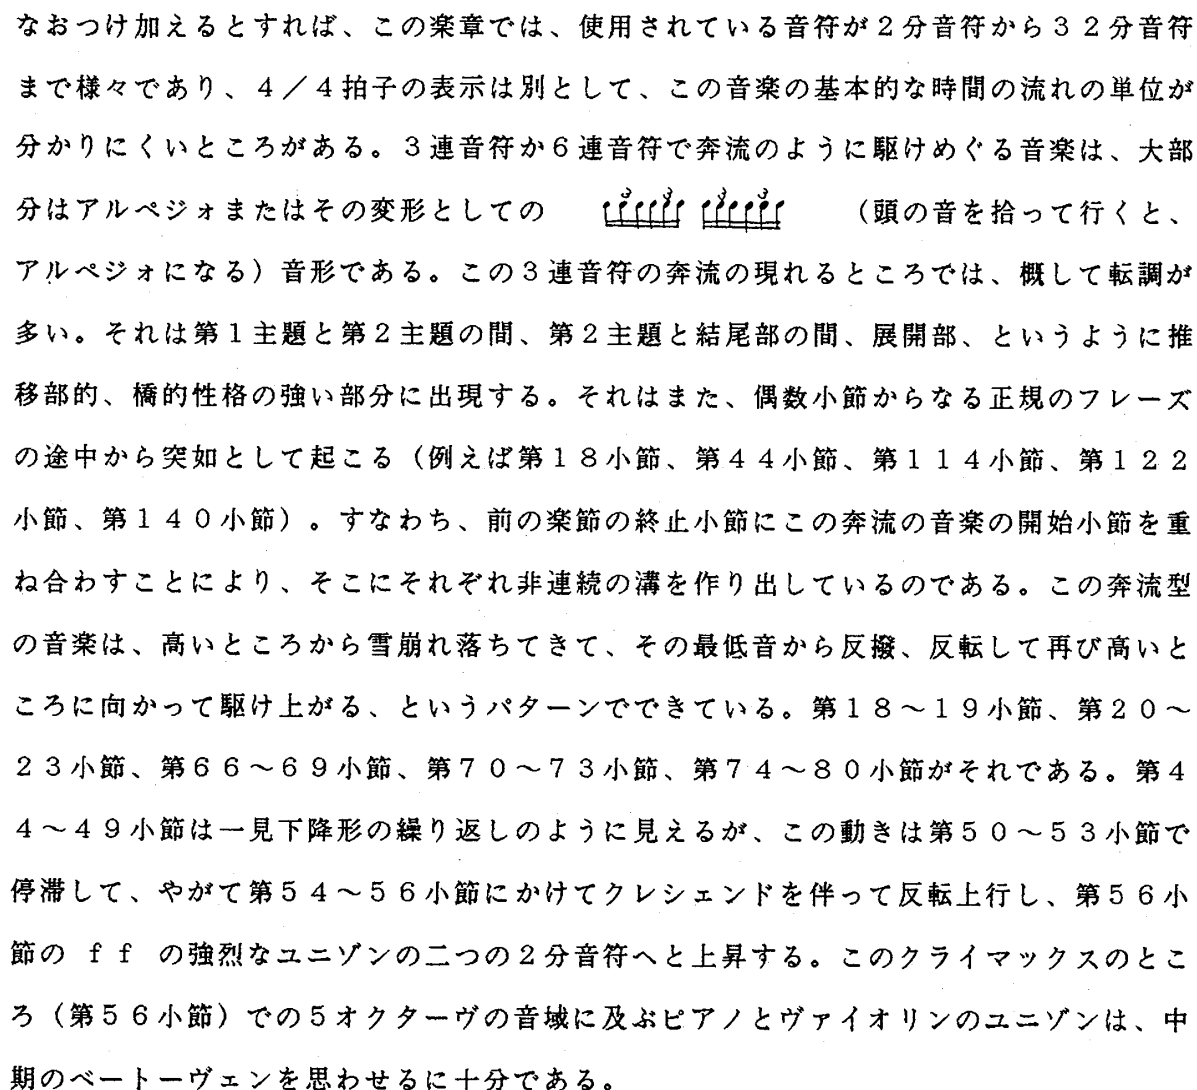 なおつけ加えるとすれば、この楽章では、使用されている音符が2分音符から32分音符
まで様々であり、4／4拍子の表示は別として、この音楽の基本的な時間の流れの単位が
分かりにくいところがある。3連音符か6連音符で奔流のように駆けめぐる音楽は、大部
分はアルペジォまたはその変形としての 3 3 3 3 （頭の音を拾って行くと、
アルペジォになる）音形である。この3連音符の奔流の現れるところでは、概して転調が
多い。それは第1主題と第2主題の間、第2主題と結尾部の間、展開部、というように推
移部的、橋的性格の強い部分に出現する。それはまた、偶数小節からなる正規のフレーズ
の途中から突如として起こる（例えば第18小節、第44小節、第114小節、第122
小節、第140小節）。すなわち、前の楽節の終止小節にこの奔流の音楽の開始小節を重
ね合わすことにより、そこにそれぞれ非連続の溝を作り出しているのである。この奔流型
の音楽は、高いところから雪崩れ落ちてきて、その最低音から反撥、反転して再び高いと
ころに向かって駆け上がる、というパターンでできている。第18～19小節、第20～
23小節、第66～69小節、第70～73小節、第74～80小節がそれである。第4
4～49小節は一見下降形の繰り返しのように見えるが、この動きは第50～53小節で
停滞して、やがて第54～56小節にかけてクレシェンドを伴って反転上行し、第56小
節の ff の強烈なユニゾンの二つの2分音符へと上昇する。このクライマックスのとこ
ろ（第56小節）での5オクターヴの音域に及ぶピアノとヴァイオリンのユニゾンは、中
期のベートーヴェンを思わせるに十分である。